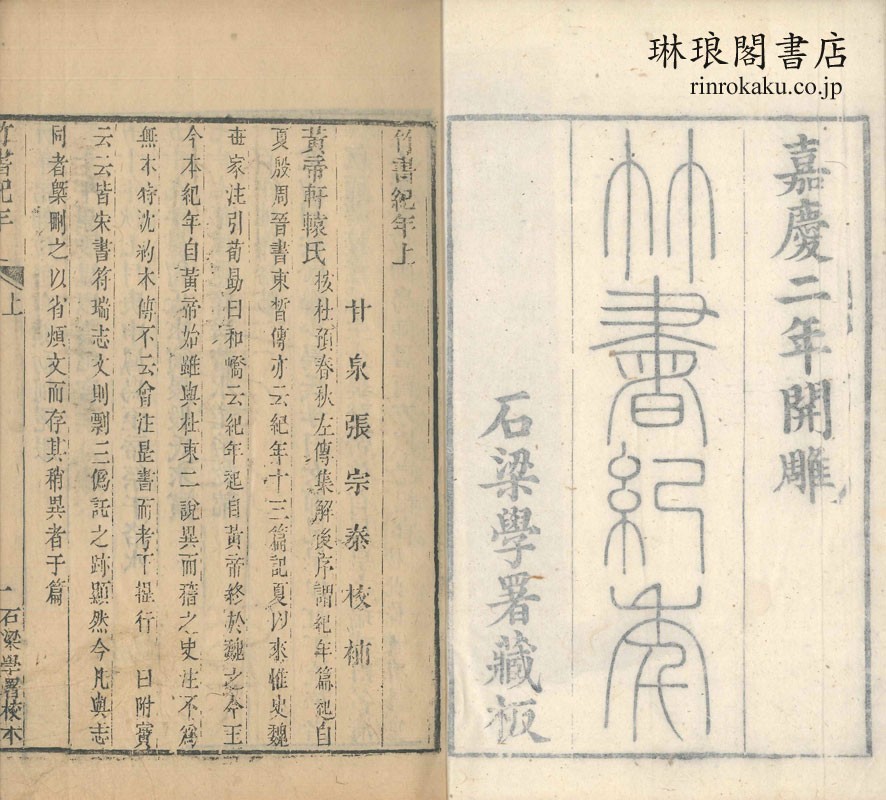 琳琅閣書店
rinrokaku.co.jp
嘉慶二年開雕
竹書紀年
石梁學署藏板
竹書紀年上
甘泉張宗泰校補
黃帝軒轅氏 按杜預春秋左傳集解後序謂紀年篇起自
夏殷周晉書束晳傳亦云紀年十三篇記夏以來惟史魏
世家注引荀勗曰和嶠云紀年起自黃帝終於魏之今王
今本紀年自黃帝始雖與杜束二說異而稽之史注不為
無本特沈約本傳不云曾注是書而考下提行 曰附實
云云皆宋書符瑞志文則剽 偽託之跡顯然今凡與志
同者槩刪之以省煩文而存其稍異者于篇
竹書紀年 上 一 石梁學署校本